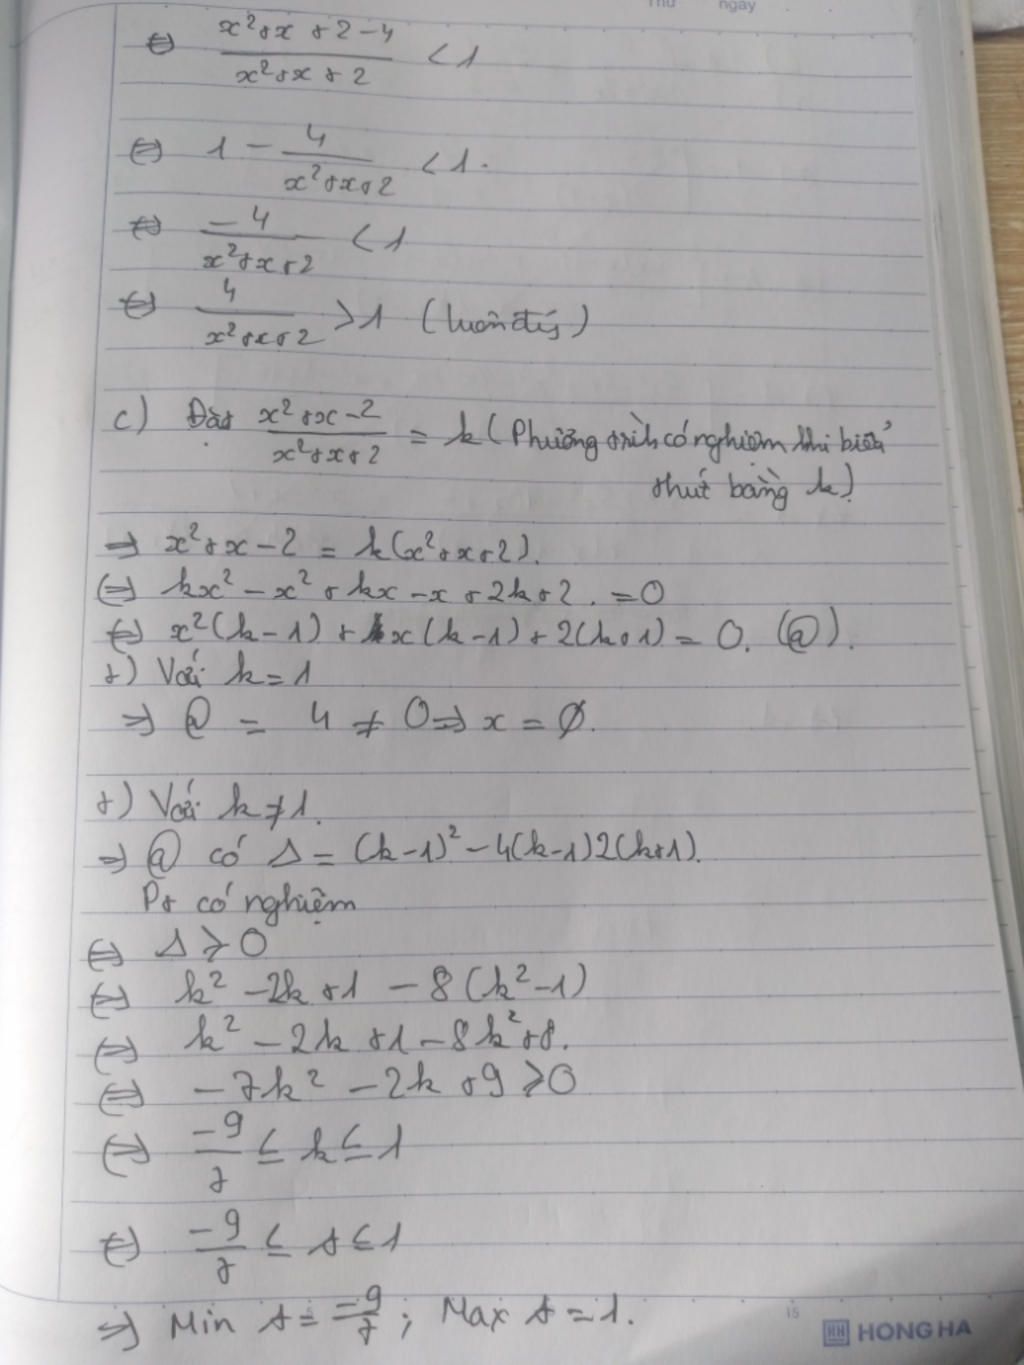 Thứ ngày
⇔ \frac{x²+x+2-4}{x²+x+2} < 1
⇔ 1 - \frac{4}{x²+x+2} < 1.
⇔ \frac{-4}{x²+x+2} < 1
⇔ \frac{4}{x²+x+2} > 1 (luôn đúng)
c) Đặt \frac{x²+x-2}{x²+x+2} = k (Phương trình có nghiệm khi biểu
thức bằng k)
⇒ x²+x-2 = k(x²+x+2).
⇔ kx² - x² + kx - x + 2k + 2 . = 0
⇔ x²(k-1) + x(k-1) + 2(k+1) = 0. (@).
+) Với k = 1
⇒ @ = 4 ≠ 0 ⇒ x = ∅.
+) Với k ≠ 1.
⇒ @ có Δ = (k-1)² - 4(k-1)2(k+1).
Pt có nghiệm
⇔ Δ ≥ 0
⇔ k² - 2k + 1 - 8(k²-1)
⇔ k² - 2k + 1 - 8k² + 8.
⇔ -7k² - 2k + 9 ≥ 0
⇔ \frac{-9}{7} ≤ k ≤ 1
⇔ \frac{-9}{7} ≤ A ≤ 1
⇒ Min A = \frac{-9}{7} ; Max A = 1.
15
HH HONG HA